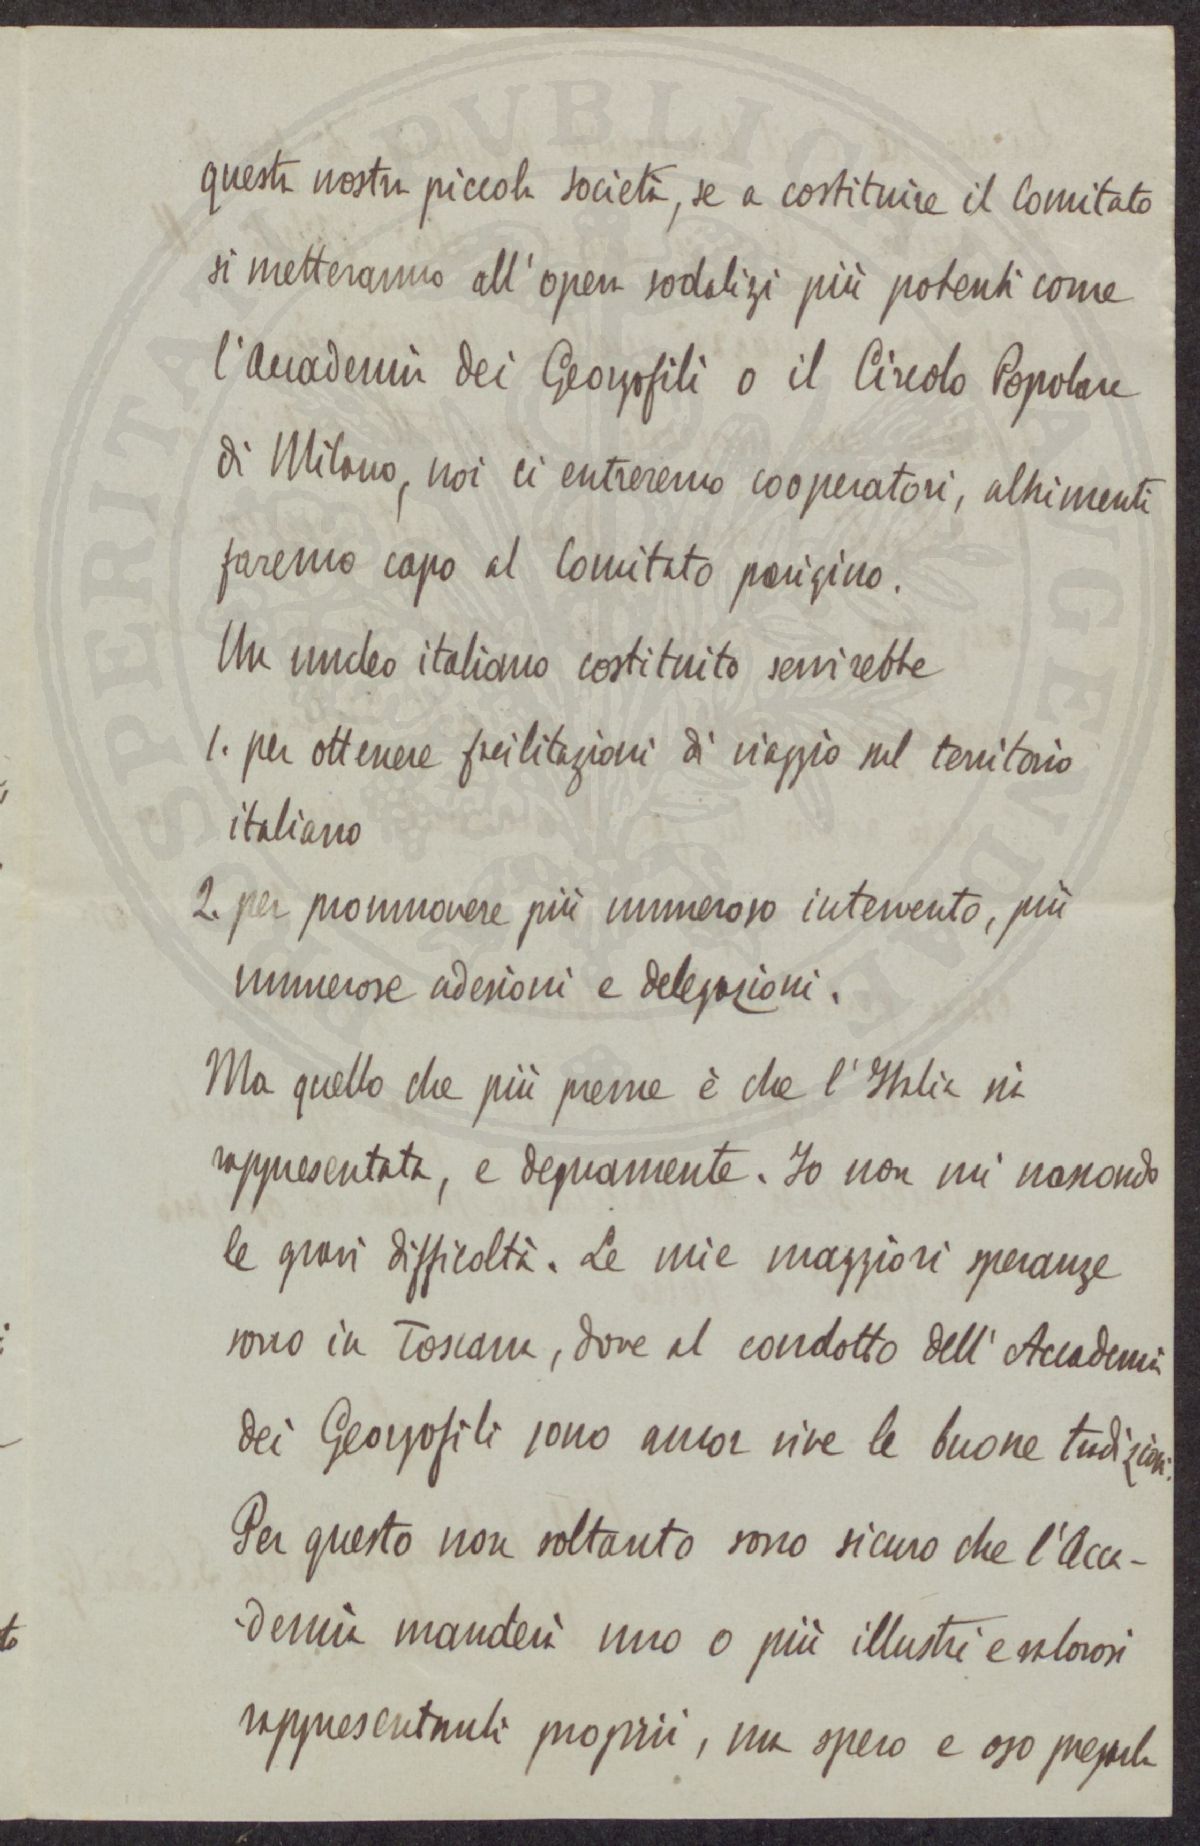 questa nostra piccola società, se a costituire il Comitato
si metteranno all'opera sodalizi più potenti come
l'Accademia dei Georgofili o il Circolo Popolare
di Milano, noi ci entreremo cooperatori, altrimenti
faremo capo al Comitato parigino.
Un nucleo italiano costituito servirebbe
1. per ottenere facilitazioni di viaggio sul territorio
italiano
2. per promuovere più numeroso intervento, più
numerose adesioni e delegazioni.
Ma quello che più preme è che l'Italia sia
rappresentata, e degnamente. Io non mi nascondo
le gravi difficoltà. Le mie maggiori speranze
sono in Toscana, dove al condotto dell'Accademia
dei Georgofili sono ancor vive le buone tradizioni.
Per questo non soltanto sono sicuro che l'Acca-
-demia manderà uno o più illustri e valorosi
rappresentanti proprii, ma spero e oso pregarla